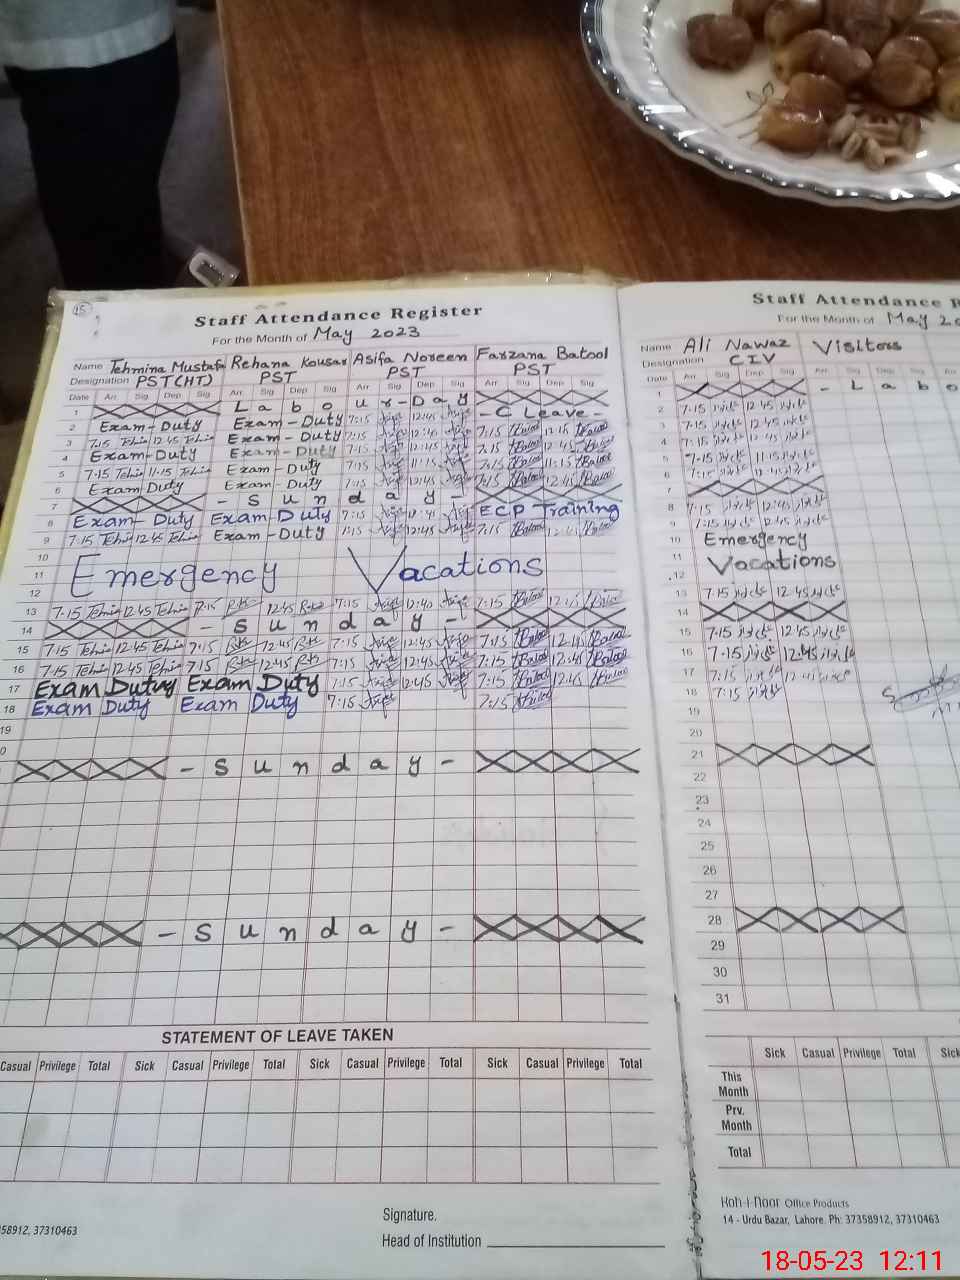 15
Staff Attendance Register
For the Month of May 2023
Name Tehmina Mustafa Rehana Kousar Asifa Noreen Farzana Batool
Designation PST(HT) PST PST PST
Date Arr Sig Dep Sig Arr Sig Dep Sig Arr Sig Dep Sig Arr Sig Dep Sig
1 Labour-Day
2 Exam-Duty Exam-Duty 7:15 12:45 -C Leave-
3 7:15 Tehmin 12:45 Tehmin Exam-Duty 7:15 12:45 7:15 Batool 12:15 Batool
4 Exam-Duty Exam-Duty 7:15 12:45 7:15 Batool 12:45 Batool
5 7:15 Tehmin 11:15 Tehmin Exam-Duty 7:15 11:15 7:15 Batool 11:15 Batool
6 Exam Duty Exam-Duty 7:15 12:45 7:15 Batool 12:45 Batool
7 - Sunday -
8 Exam-Duty Exam-Duty 7:15 ECP Training
9 7:15 Tehmin 12:45 Tehmin Exam-Duty 12:45 7:15 Batool 12:45 Batool
10
11 Emergency Vacations
12
13 7:15 Tehmin 12:45 Tehmin 7:15 12:45 7:15 12:40 7:15 Batool 12:15 Batool
14 - Sunday -
15 7:15 Tehmin 12:45 Tehmin 7:15 12:45 7:15 12:45 7:15 Batool 12:45 Batool
16 7:15 Tehmin 12:45 Tehmin 7:15 12:45 7:15 12:45 7:15 Batool 12:45 Batool
17 Exam Duty Exam Duty 7:15 12:45 7:15 Batool 12:45 Batool
18 Exam Duty Exam Duty 7:15 7:15 Batool
19
- Sunday -
- Sunday -
STATEMENT OF LEAVE TAKEN
Casual Privilege Total Sick Casual Privilege Total Sick Casual Privilege Total Sick Casual Privilege Total
58912, 37310463
Signature.
Head of Institution
Staff Attendance R
For the Month of May 20
Name Ali Nawaz Visitors
Designation CIV
Date Arr Sig Dep Sig Arr Sig Dep Sig
1 - Labo
2 7:15 12:45
3 7:15 12:45
4 7:15 12:45
5 7:15 11:15
6 7:15 12:45
7
8 7:15 12:45
9 7:15 12:45
10 Emergency
11 Vacations
12
13 7:15 12:45
14
15 7:15 12:45
16 7:15 12:45
17 7:15 12:45
18 7:15
19
20
21
22
23
24
25
26
27
28
29
30
31
Sick Casual Privilege Total Sick
This Month
Prv. Month
Total
Koh-I-Noor Office Products
14 - Urdu Bazar, Lahore. Ph: 37358912, 37310463
18-05-23 12:11